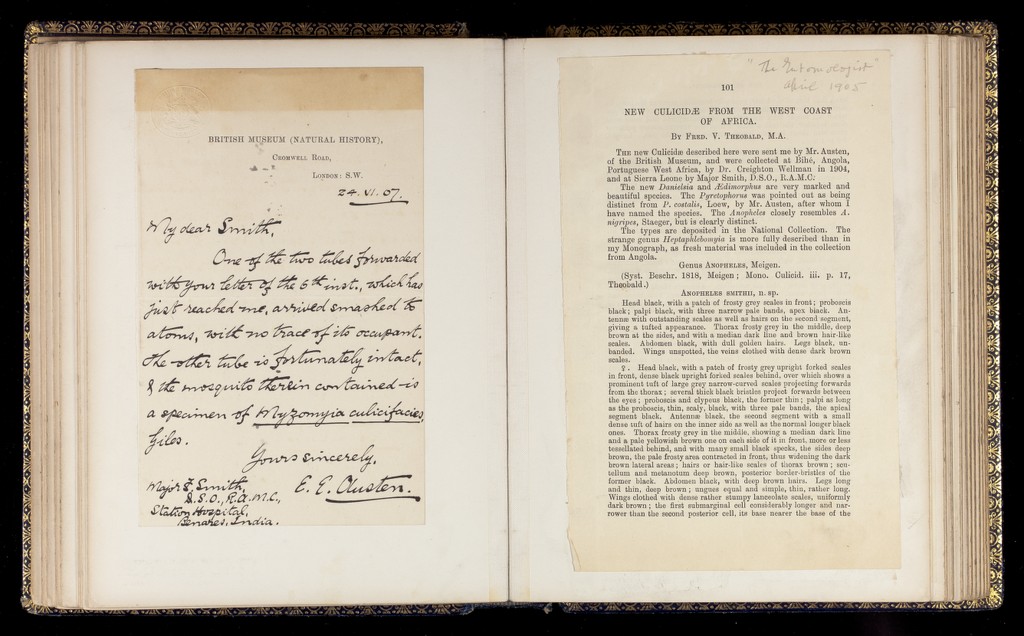 BRITISH MUSEUM (NATURAL HISTORY),
CROMWELL ROAD,
LONDON: S.W.
24. VI. 07.
My dear Smith,
One of the two tubes forwarded
with your letter of the 6th inst., which has
just reached me, arrived smashed to
atoms, with no trace of its occupant.
The other tube is fortunately intact,
& the mosquito therein contained is
a specimen of Myzomyia culicifacies,
Giles.
Yours sincerely,
E. E. Austen.
Major F. Smith,
D.S.O., R.A.M.C.,
Station Hospital,
Benares, India.
"The Entomologist"
April 1905
101
NEW CULICIDÆ FROM THE WEST COAST
OF AFRICA.
BY FRED. V. THEOBALD, M.A.
THE new Culicidæ described here were sent me by Mr. Austen,
of the British Museum, and were collected at Bihé, Angola,
Portuguese West Africa, by Dr. Creighton Wellman in 1904,
and at Sierra Leone by Major Smith, D.S.O., R.A.M.C:
The new Danielsia and Ædimorphus are very marked and
beautiful species. The Pyretophorus was pointed out as being
distinct from P. costalis, Loew, by Mr. Austen, after whom I
have named the species. The Anopheles closely resembles A.
nigripes, Staeger, but is clearly distinct.
The types are deposited in the National Collection. The
strange genus Heptaphlebomyia is more fully described than in
my Monograph, as fresh material was included in the collection
from Angola.
Genus ANOPHELES, Meigen.
(Syst. Beschr. 1818, Meigen; Mono. Culicid. iii. p. 17,
Theobald.)
ANOPHELES SMITHII, n. sp.
Head black, with a patch of frosty grey scales in front; proboscis
black; palpi black, with three narrow pale bands, apex black. An-
tennæ with outstanding scales as well as hairs on the second segment,
giving a tufted appearance. Thorax frosty grey in the middle, deep
brown at the sides, and with a median dark line and brown hair-like
scales. Abdomen black, with dull golden hairs. Legs black, un-
banded. Wings unspotted, the veins clothed with dense dark brown
scales.
♀. Head black, with a patch of frosty grey upright forked scales
in front, dense black upright forked scales behind, over which shows a
prominent tuft of large grey narrow-curved scales projecting forwards
from the thorax; several thick black bristles project forwards between
the eyes; proboscis and clypeus black, the former thin; palpi as long
as the proboscis, thin, scaly, black, with three pale bands, the apical
segment black. Antennæ black, the second segment with a small
dense tuft of hairs on the inner side as well as the normal longer black
ones. Thorax frosty grey in the middle, showing a median dark line
and a pale yellowish brown one on each side of it in front, more or less
tessellated behind, and with many small black specks, the sides deep
brown, the pale frosty area contracted in front, thus widening the dark
brown lateral areas; hairs or hair-like scales of thorax brown; scu-
tellum and metanotum deep brown, posterior border-bristles of the
former black. Abdomen black, with deep brown hairs. Legs long
and thin, deep brown; ungues equal and simple, thin, rather long.
Wings clothed with dense rather stumpy lanceolate scales, uniformly
dark brown; the first submarginal cell considerably longer and nar-
rower than the second posterior cell, its base nearer the base of the